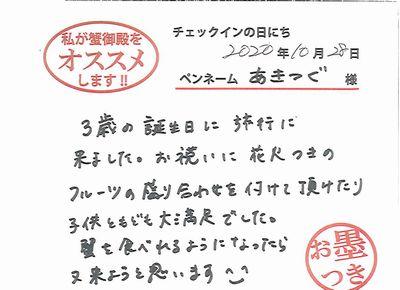 私が蟹御殿を
オススメ
します!!
チェックインの日にち
2020年10月28日
ペンネーム あきつぐ 様
3歳の誕生日に旅行に
来ました。お祝いに花火つきの
フルーツの盛り合わせを付けて頂けたり
子供ともども大満足でした。
蟹を食べれるようになったら
又来ようと思います
お墨
つき